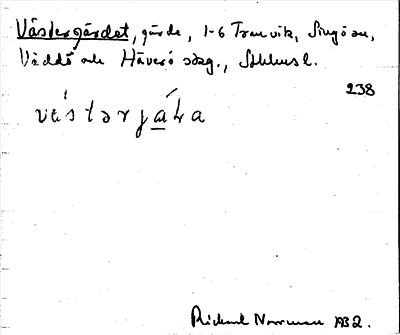 Västergärdet, gärde, 1-6 Tranvik, Singö sn,
Väddö och Häverö sdlg., Sthlms l.
238
västərjäɽa
Rickard Norrman 1932.